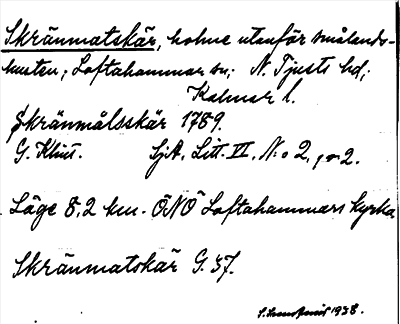 Skränmatskär, holme utanför smålands-
kusten; Loftahammar sn; N. Tjusts hd;
Kalmar l.
Skränmålsskär 1789.
G. Klint. SjA, Litt. VI, N:o 2,
Läge 8,2 km. ÖNÖ Loftahammars kyrka
Skränmatskär G. 37.
1938.